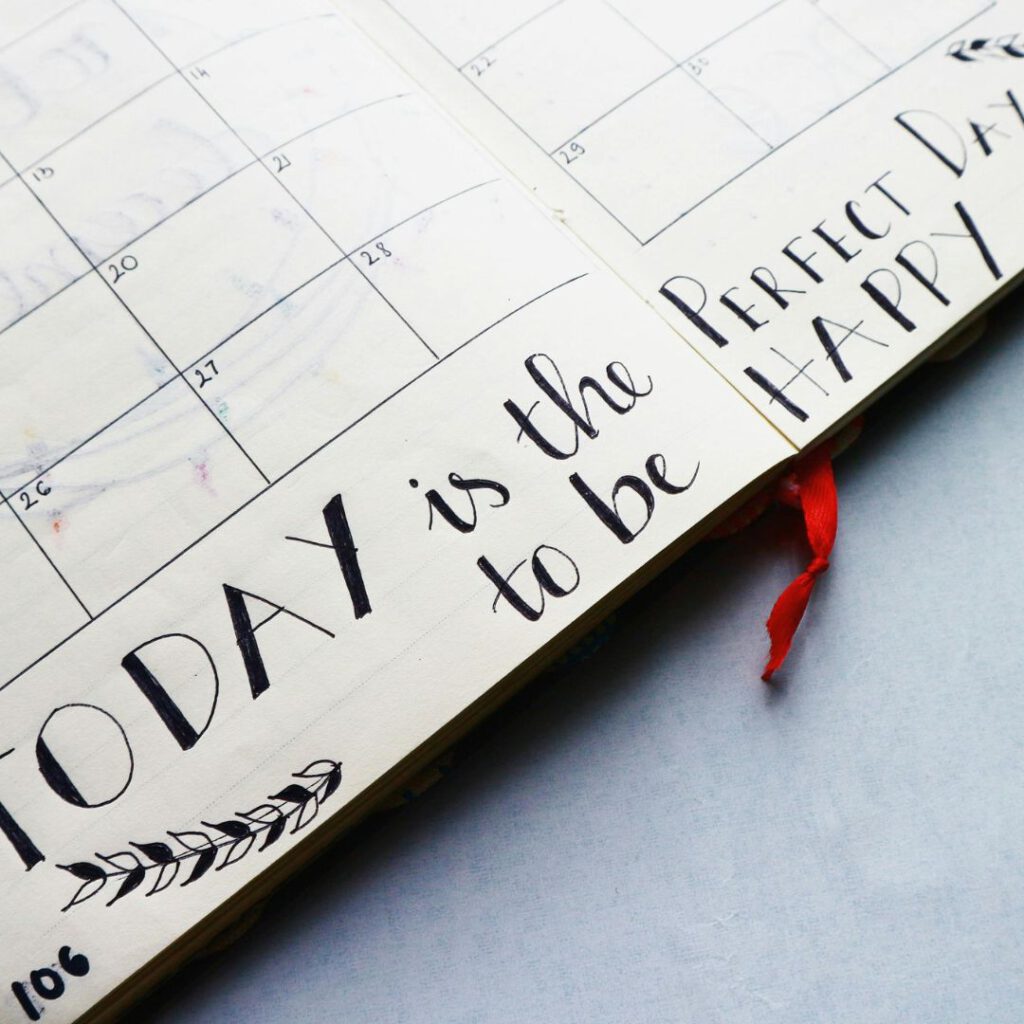 13 14
20 21
26 27 28
22
29 30
TODAY is the PERFECT DAY
to be HAPPY
106